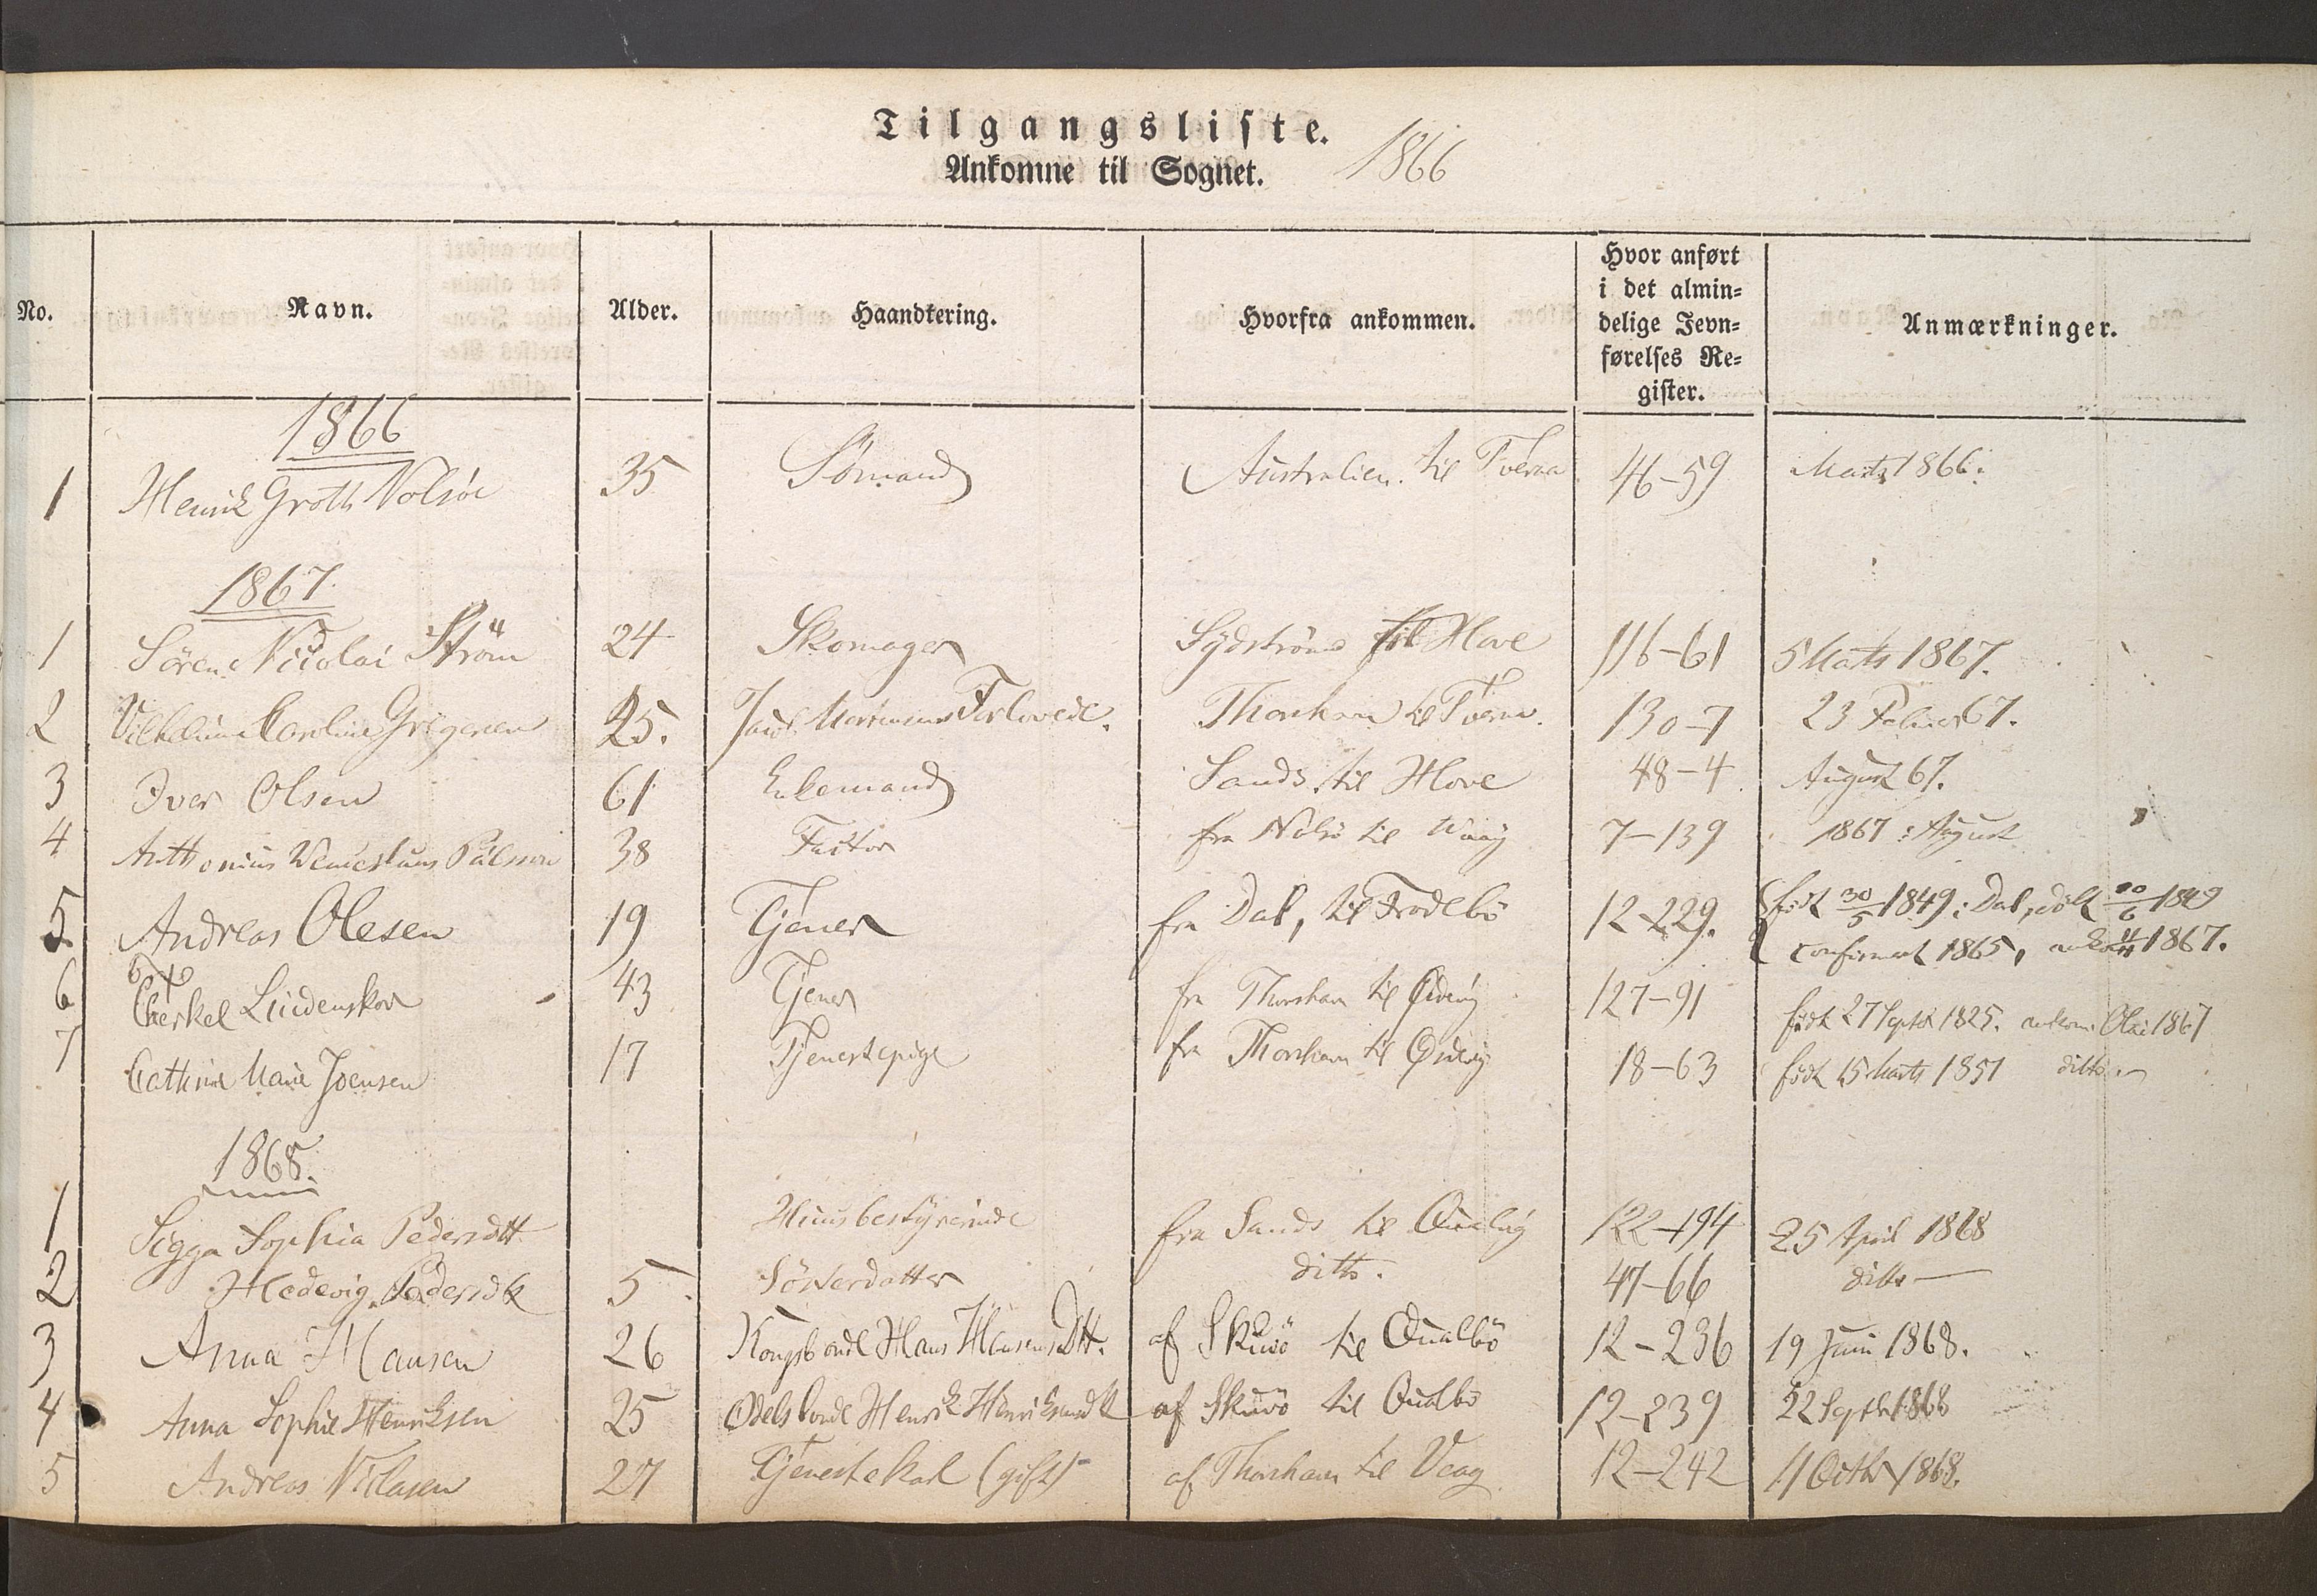 Tilgangsliste.
Ankomne til Sognet. 1866
No. Navn. Alder. Haandtering. Hvorfra ankommen. Hvor anført i det almindelige Jevnførelses Register. Anmærkninger.
1866
1 Henrik Groth Nolsöe 35 Sömand Australien til Tveraa 46-59 Marts 1866.
1867
1 Sören Nicolai Ström 24 Skomager Sydströmö til Hove 116-61 5 Marts 1867.
2 Vilhelmine Caroline Gregersen 25. Forlovede. Thorshavn til Tveraa. 130-7 23 67.
3 Iver Olsen 61 Enkemand Sands til Hove 48-4 August 67.
4 Anthonius 38 Factor fra Nolsö til Waag 7-139 1867: August
5. Andreas Olesen 19 Tjener fra Dal, til Frodebö 12-229. født 30/5 1849 i Dal, döbt 10/6 1849
confirmeret 1865, 1867.
6 43 Tjener fra Thorshavn til 127-91 født 27 Septbr 1825. ankom Olai 1867
7 Cathrine Marie Joensen 17 Tjenestepige fra Thorshavn til 18-63 født 15 Marts 1851 ditto
1868.
1 Sigga Sophia Pedersdtt Huusbestyrerinde fra Sands til 122-194 25 April 1868
2 Hedevig Pedersdtt 5 Sösterdatter ditto. 47-66 ditto —
3 Anna Hansen 26 Kongsbonde Hans Hansens Dtt. af Skuö til Qualbö 12-236 19 Juni 1868.
4 Anna Sophie Henriksen 25 Odelsbonde Henrik Henriksens dtt af Skuö til Qualbö 12-239 22 Septbr 1868
5 Andreas Niclasen 27 Tjenestekarl (gift) af Thorshavn til Vaag 12-242 11 Octbr 1868.